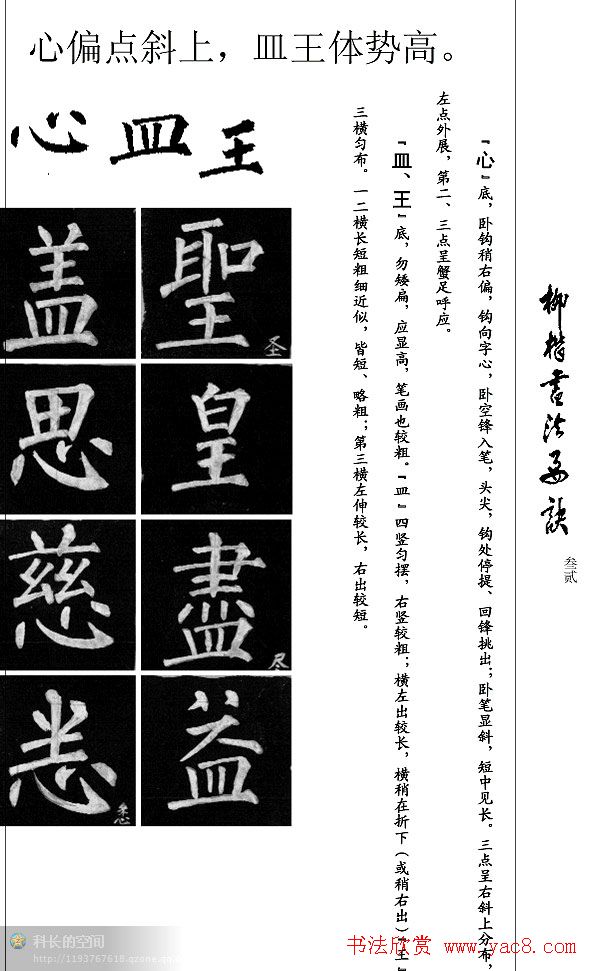 心偏点斜上，皿王体势高。
柳楷书法要诀
叁贰
“心”底，卧钩稍右偏，钩向字心，卧空锋入笔，头尖，钩处停提、回锋挑出；卧笔显斜，短中见长。三点呈右斜上分布，
左点外展，第二、三点呈蟹足呼应。
“皿、王”底，勿矮扁，应显高，笔画也较粗。“皿”四竖匀摆，右竖较粗；横左出较长，横稍在折下（或稍右出）“王”
三横匀布。一二横长短粗细近似，皆短、略粗；第三横左伸较长，右出较短。
心 皿 王
聖 圣
皇
盡 尽
益
盖
思
慈
悉
科长的空间
http://1193767618.qzone.qq.com
书法欣赏 www.yac8.com